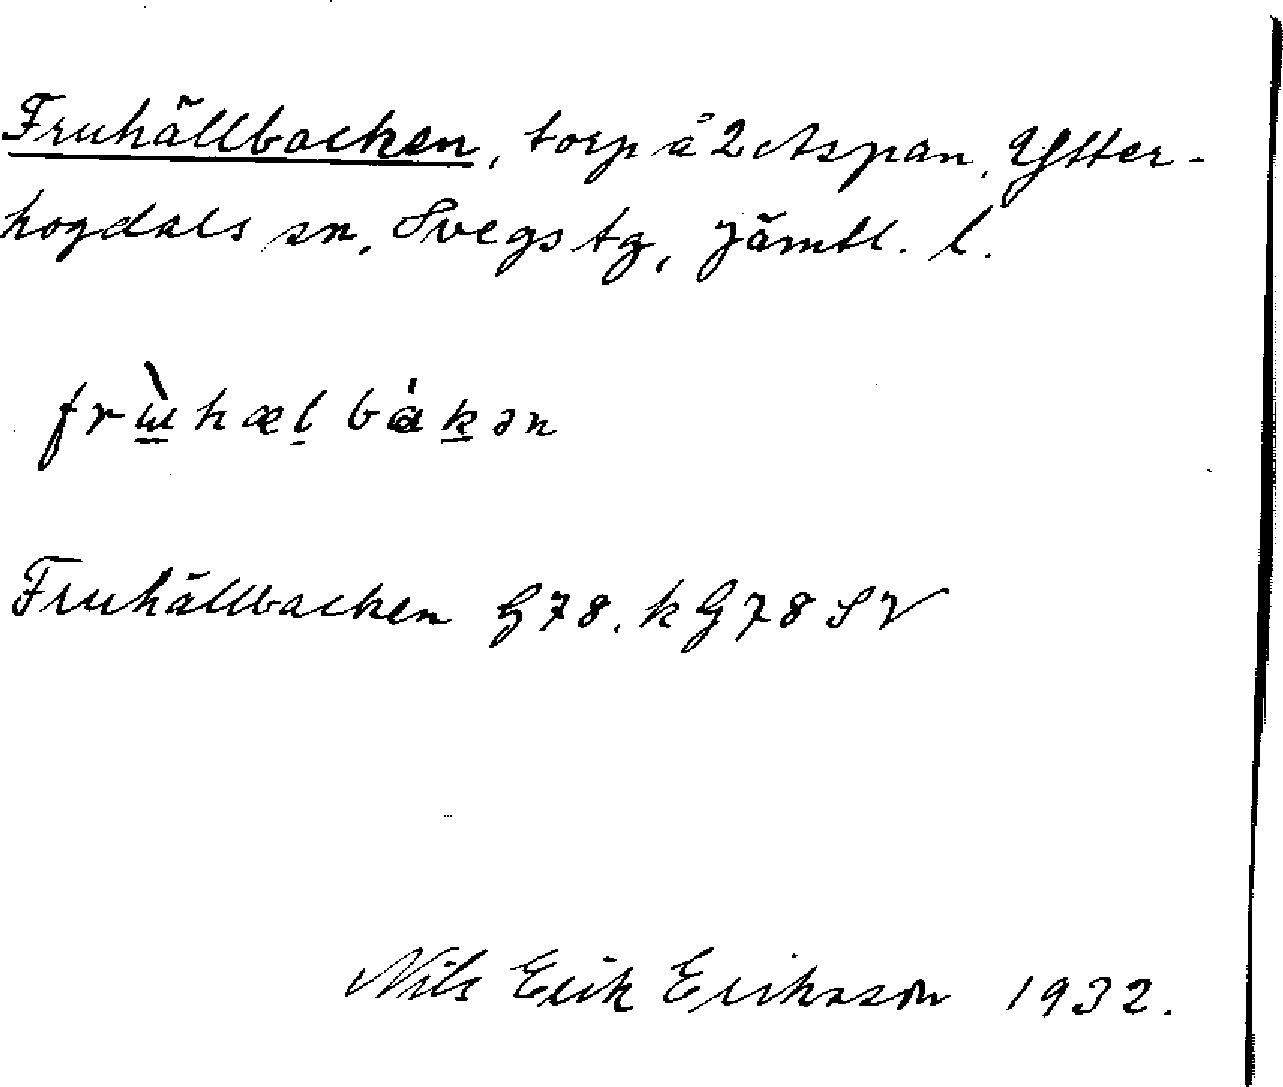 Fruhällbacken, torp å 2 Aspan, Ytter-
hogdals sn, Svegs tg, Jämtl. l.
frɯ̀hælbàkən
Fruhällbacken G78. k G78 SV
Nils Erik Eriksson 1932.